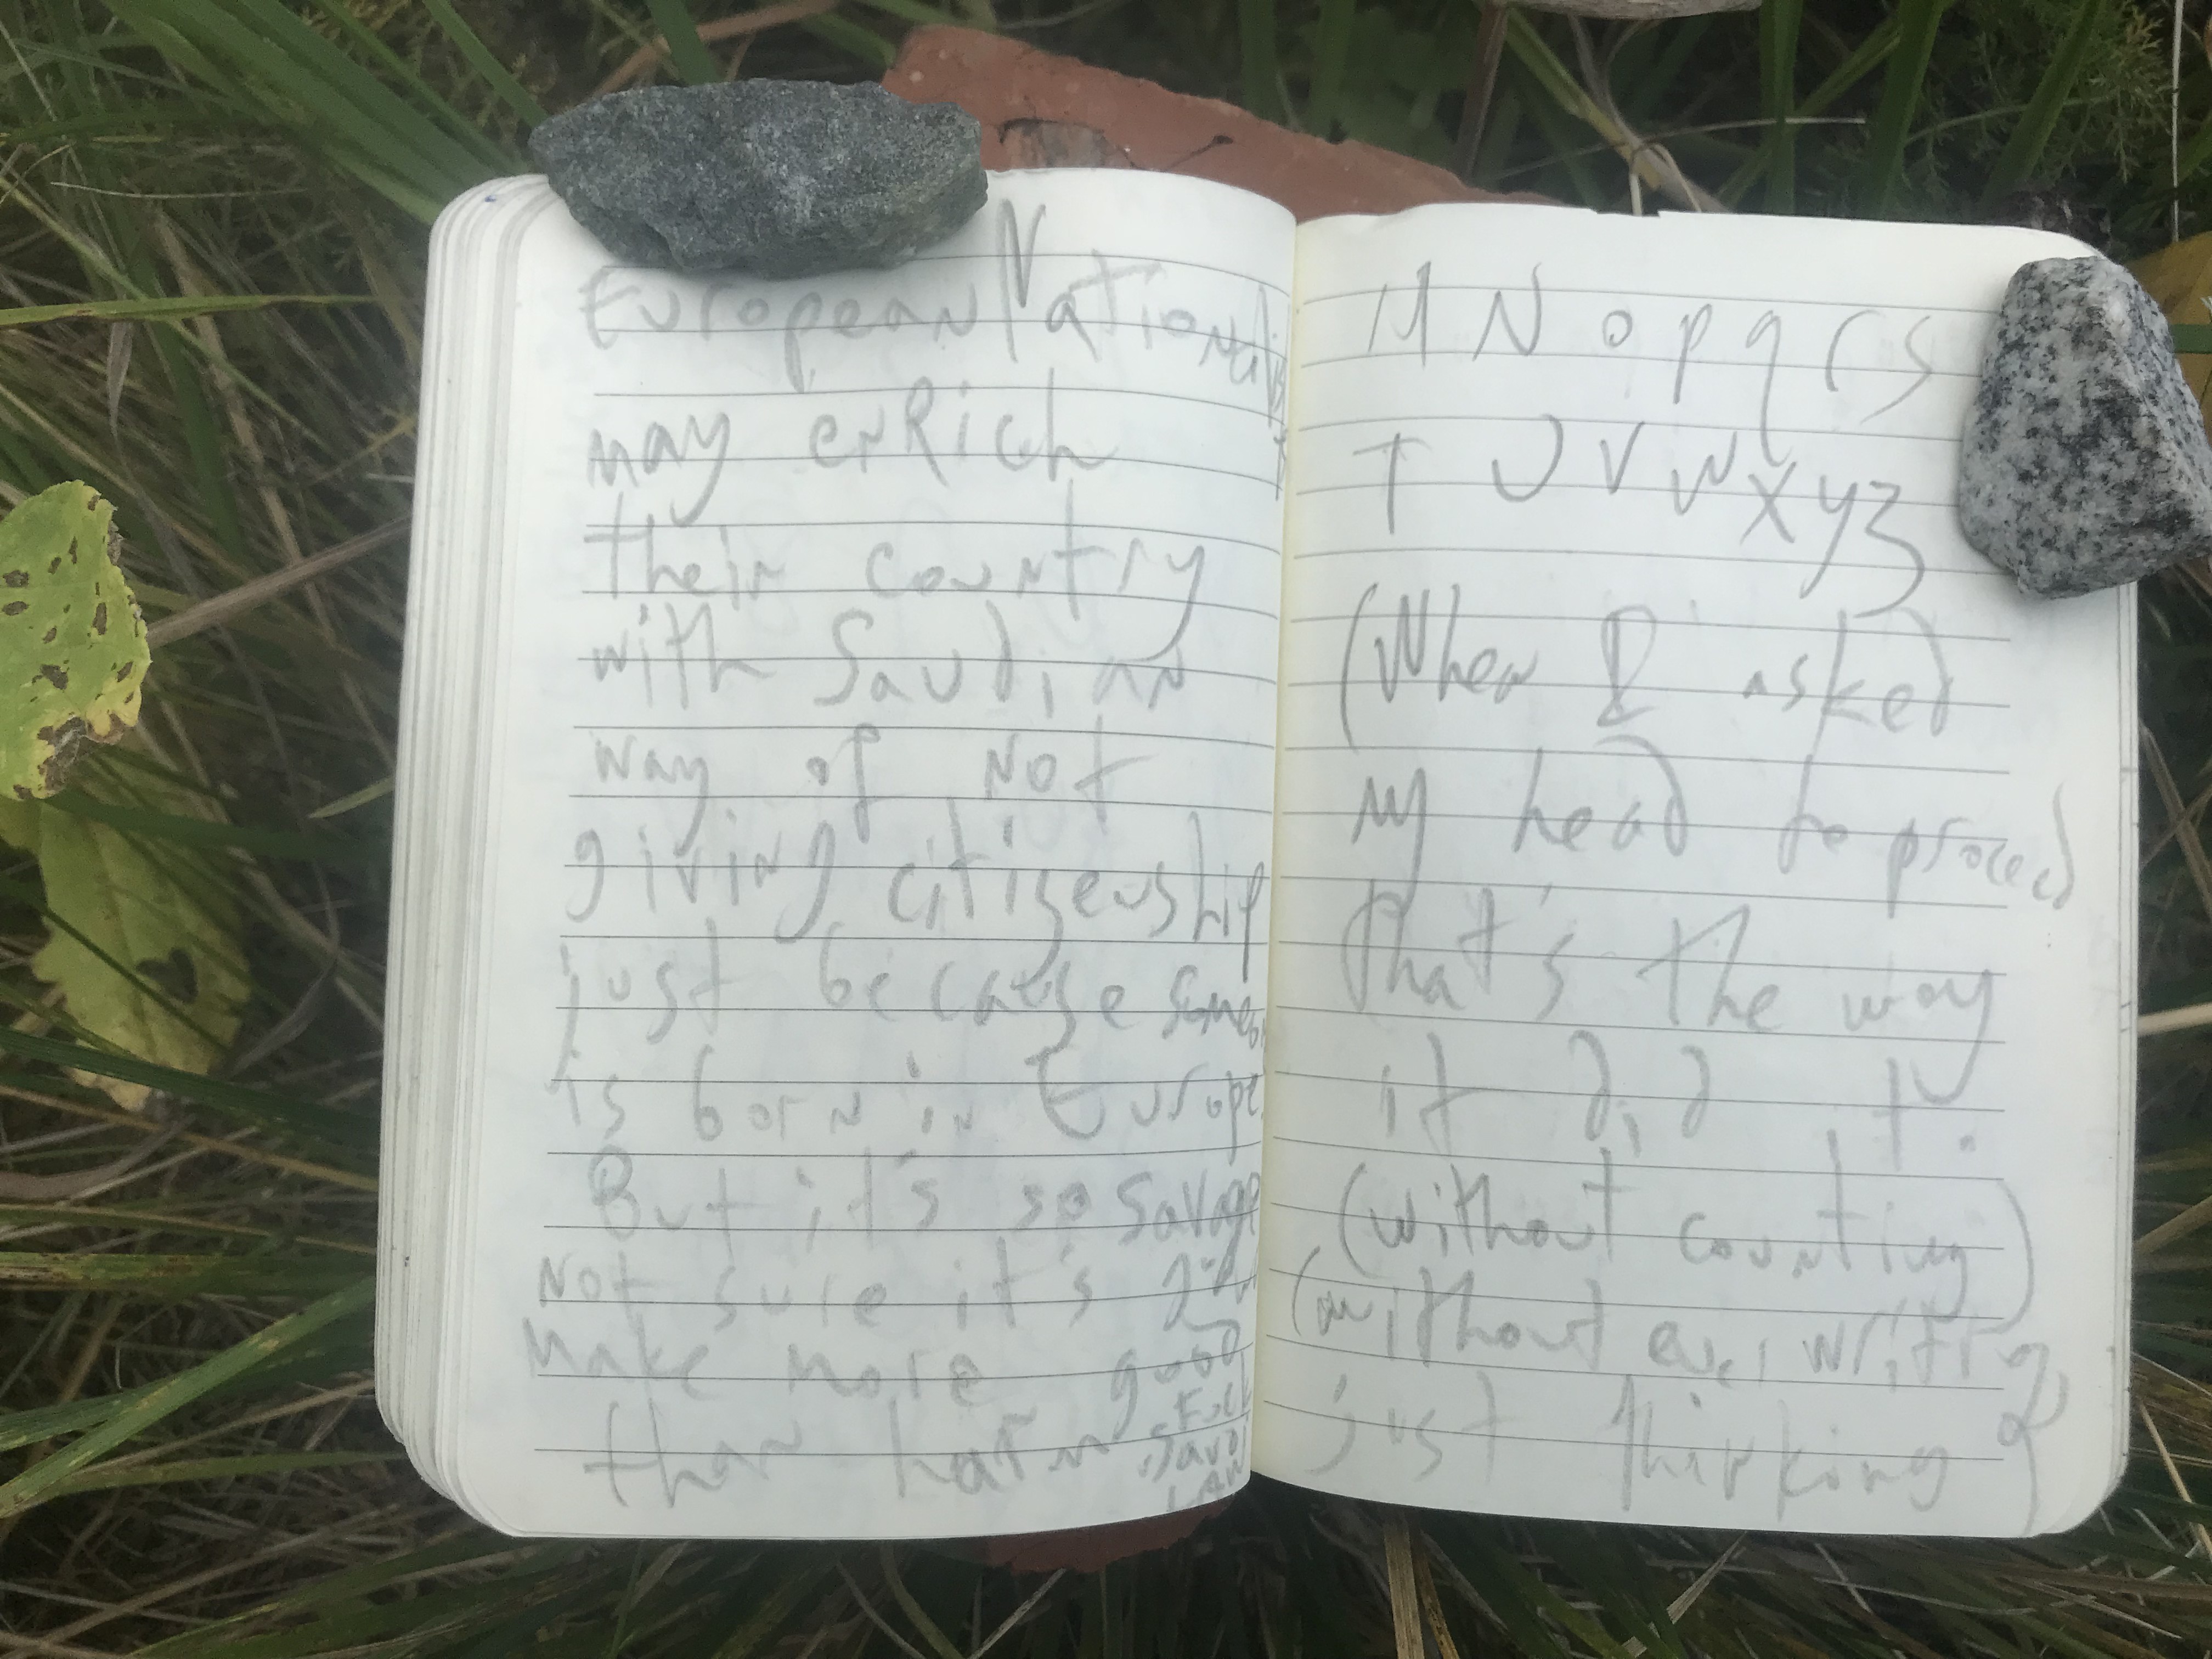 European Nationality
may enRich
their country
with Saudi an
way of Not
giving citisenship
just because someone
is born in Europe
But it's so savage
Not sure it's
make more good
than harm
M N O P Q (S
T U V W X Y Z
(When I asked
my head to proceed
that's the way
it did it.
(without counting)
(without even writing
just thinking of